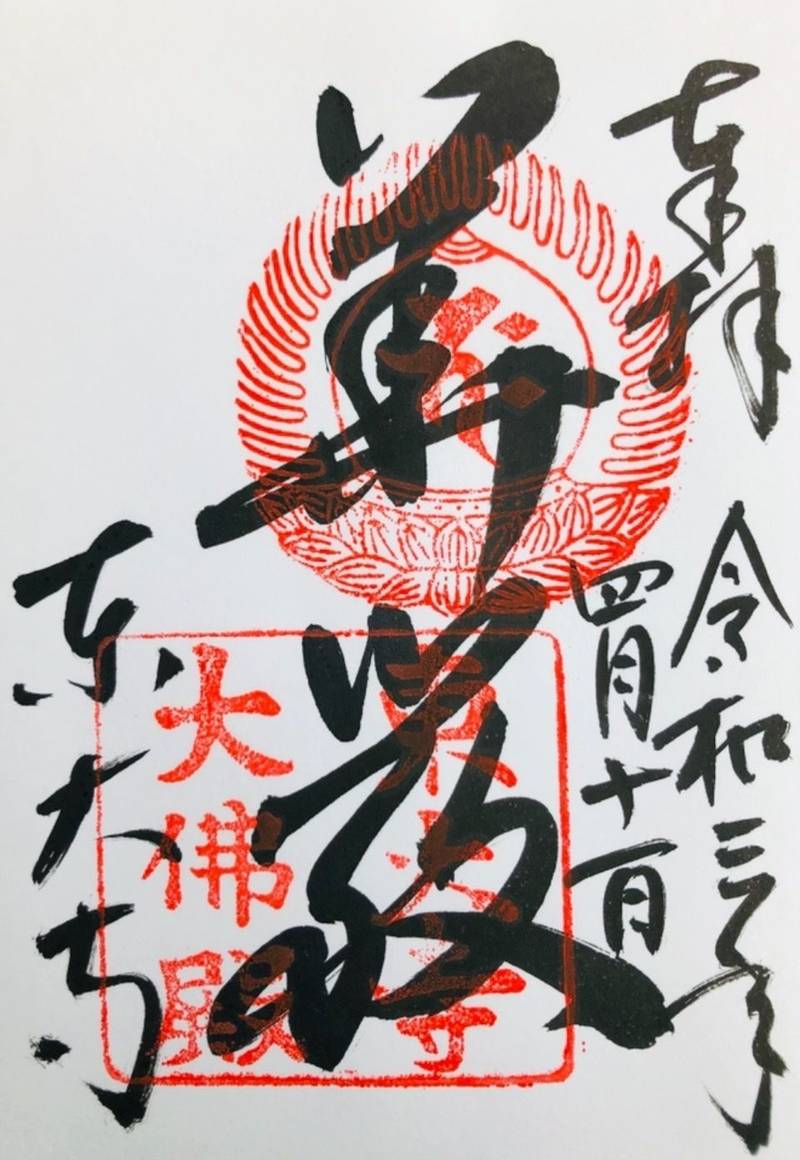 奉拝
令和三年
四月十一日
華厳
東大寺
大佛殿
東大寺